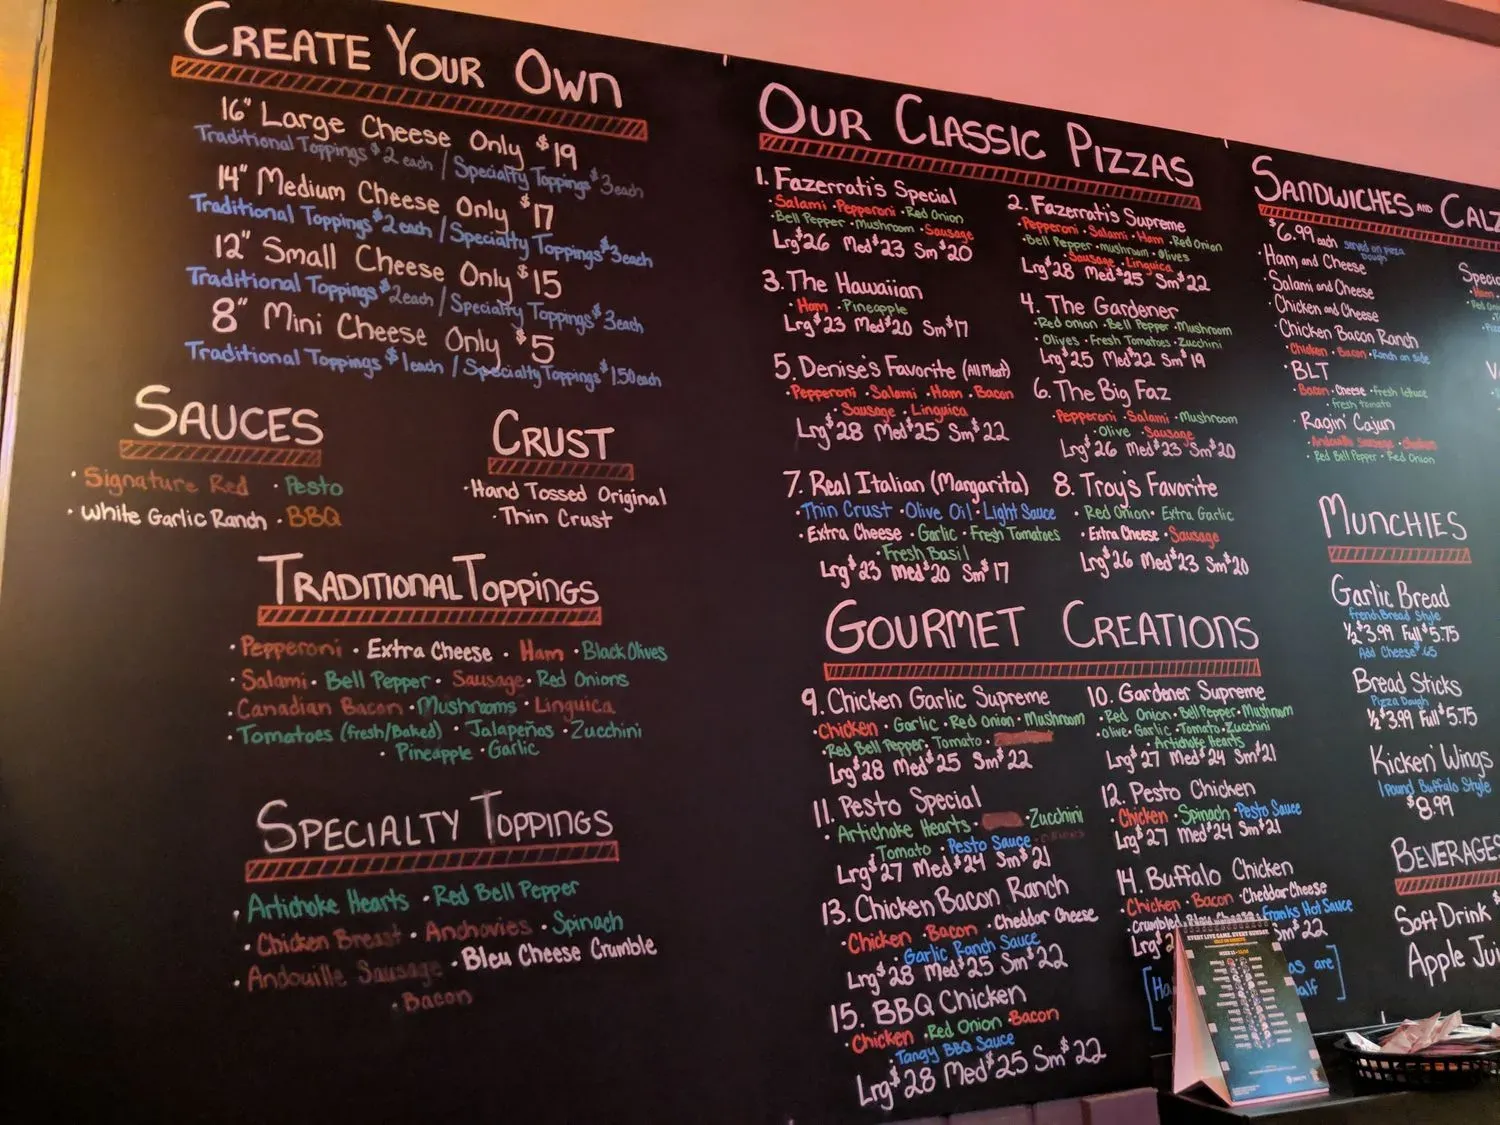 CREATE YOUR OWN
16" Large Cheese Only $19
Traditional Toppings $2 each / Specialty Toppings $3 each
14" Medium Cheese Only $17
Traditional Toppings $2 each / Specialty Toppings $3 each
12" Small Cheese Only $15
Traditional Toppings $2 each / Specialty Toppings $3 each
8" Mini Cheese Only $5
Traditional Toppings $1 each / Specialty Toppings $1.50 each
SAUCES
· Signature Red · Pesto
· White Garlic Ranch · BBQ
CRUST
· Hand Tossed Original
· Thin Crust
TRADITIONAL TOPPINGS
· Pepperoni · Extra Cheese · Ham · Black Olives
· Salami · Bell Pepper · Sausage · Red Onions
· Canadian Bacon · Mushrooms · Linguica
· Tomatoes (Fresh/Baked) · Jalapeños · Zucchini
· Pineapple · Garlic
SPECIALTY TOPPINGS
· Artichoke Hearts · Red Bell Pepper
· Chicken Breast · Anchovies · Spinach
· Andouille Sausage · Bleu Cheese Crumble
· Bacon
OUR CLASSIC PIZZAS
1. Fazerrati's Special
· Salami · Pepperoni · Red Onion
· Bell Pepper · Mushroom · Sausage
Lrg $26 Med $23 Sm $20
2. Fazerrati's Supreme
· Pepperoni · Salami · Ham · Red Onion
· Bell Pepper · mushroom · Olives
· Sausage · Linguica
Lrg $28 Med $25 Sm $22
3. The Hawaiian
· Ham · Pineapple
Lrg $23 Med $20 Sm $17
4. The Gardener
· Red onion · Bell Pepper · Mushroom
· Olives · Fresh Tomatoes · Zucchini
Lrg $25 Med $22 Sm $19
5. Denise's Favorite (All Meat)
· Pepperoni · Salami · Ham · Bacon
· Sausage · Linguica
Lrg $28 Med $25 Sm $22
6. The Big Faz
· Pepperoni · Salami · Mushroom
· Olive · Sausage
Lrg $26 Med $23 Sm $20
7. Real Italian (Margarita)
· Thin Crust · Olive Oil · Light Sauce
· Extra Cheese · Garlic · Fresh Tomatoes
· Fresh Basil
Lrg $23 Med $20 Sm $17
8. Troy's Favorite
· Red Onion · Extra Garlic
· Extra Cheese · Sausage
Lrg $26 Med $23 Sm $20
GOURMET CREATIONS
9. Chicken Garlic Supreme
· Chicken · Garlic · Red Onion · Mushroom
· Red Bell Pepper · Tomato ·
Lrg $28 Med $25 Sm $22
10. Gardener Supreme
· Red Onion · Bell Pepper · Mushroom
· Olive · Garlic · Tomato · Zucchini
· Artichoke Hearts
Lrg $27 Med $24 Sm $21
11. Pesto Special
· Artichoke Hearts · · Zucchini
· Tomato · Pesto Sauce
Lrg $27 Med $24 Sm $21
12. Pesto Chicken
· Chicken · Spinach · Pesto Sauce
Lrg $27 Med $24 Sm $21
13. Chicken Bacon Ranch
· Chicken · Bacon · Cheddar Cheese
· Garlic Ranch Sauce
Lrg $28 Med $25 Sm $22
14. Buffalo Chicken
· Chicken · Bacon · Cheddar Cheese
· Crumbled Bleu Cheese · Franks Hot Sauce
Lrg $2 Sm $22
15. BBQ Chicken
· Chicken · Red Onion · Bacon
· Tangy BBQ Sauce
Lrg $28 Med $25 Sm $22
[Ha as are
half ]
EVERY LIVE GAME. EVERY SUNDAY.
SANDWICHES AND CALZ
$6.99 each served on pizza dough
· Ham and Cheese
· Salami and Cheese
· Chicken and Cheese
· Chicken Bacon Ranch
· Chicken · Bacon · Ranch on side
· BLT
· Bacon · Cheese · fresh lettuce
· fresh tomato
· Ragin' Cajun
· Andouille Sausage · Chicken
· Red Bell Pepper · Red Onion
Specia
MUNCHIES
Garlic Bread
French Bread Style
½ $3.99 Full $5.75
Add Cheese $.65
Bread Sticks
Pizza Dough
½ $3.99 Full $5.75
Kicken' Wings
1 pound Buffalo Style
$8.99
BEVERAGES
Soft Drink $
Apple Jui